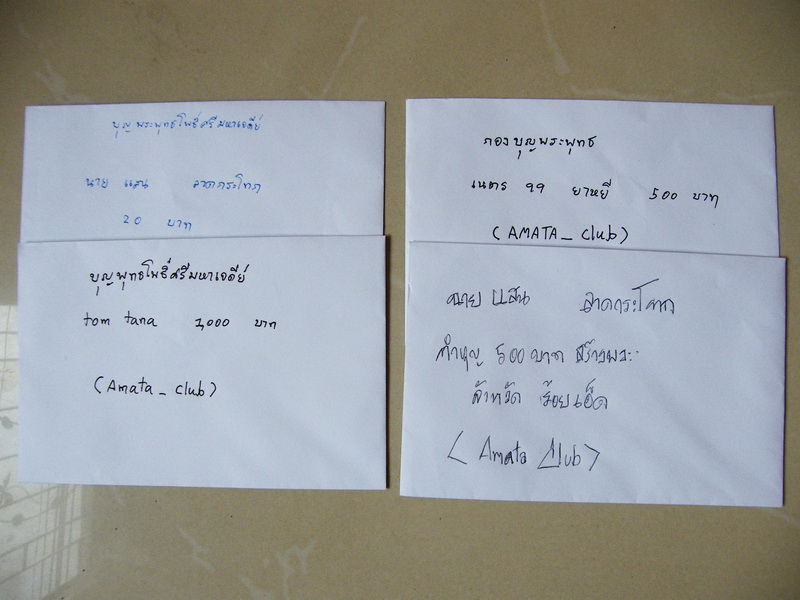 บุญพระพุทธโพธิ์ศรีมหาเจดีย์
นาย แสน ลาดกระโทก
20 บาท
บุญพุทธโพธิ์ศรีมหาเจดีย์
tom tana 1,000 บาท
(Amata_club)
กองบุญพระพุทธ
เนตร 99 ยาหยี 500 บาท
(AMATA_club)
นาย แสน ลาดกระโทก
ทำบุญ 500 บาท สร้างพระ
ร้อยเอ็ด
(Amata Club)